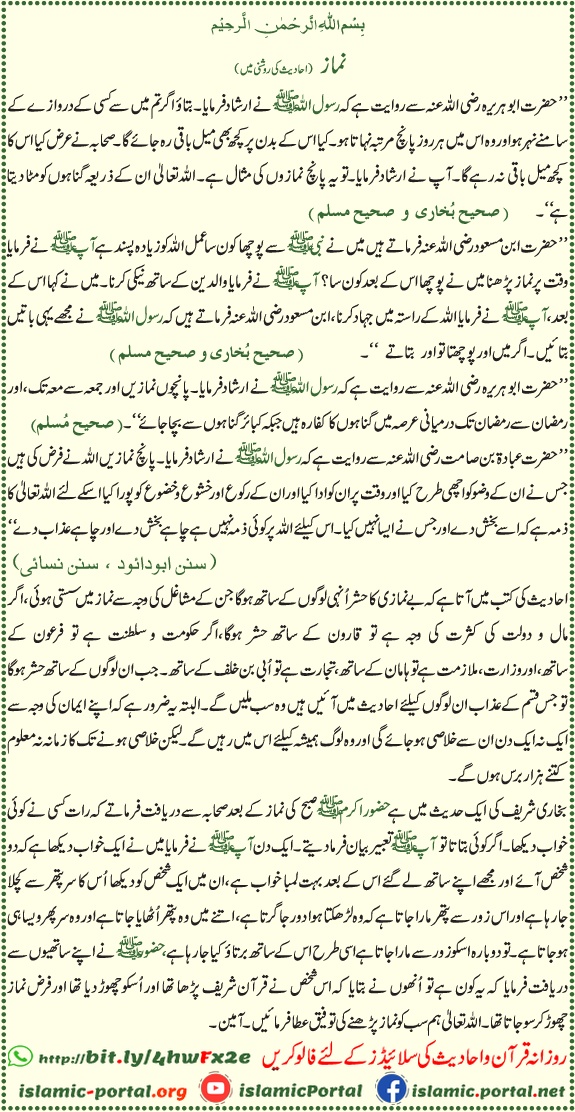 بِسْمِ اللهِ الرَّحْمٰنِ الرَّحِيْمِ
نماز (احادیث کی روشنی میں)
’’حضرت ابو ہریرہ رضی اللہ عنہ سے روایت ہے کہ رسول اللہ ﷺ نے ارشاد فرمایا۔ بتاؤ اگر تم میں سے کسی کے دروازے کے
سامنے نہر ہو اور وہ اس میں ہر روز پانچ مرتبہ نہاتا ہو۔ کیا اس کے بدن پر کچھ بھی میل باقی رہ جائے گا۔ صحابہ نے عرض کیا اس کا
کچھ میل باقی نہ رہے گا۔ آپ نے ارشاد فرمایا۔ تو یہ پانچ نمازوں کی مثال ہے۔ اللہ تعالیٰ ان کے ذریعہ گناہوں کو مٹا دیتا
ہے‘‘۔ (صحیح بُخاری و صحیح مسلم)
’’حضرت ابن مسعود رضی اللہ عنہ فرماتے ہیں میں نے نبی ﷺ سے پوچھا کون سا عمل اللہ کو زیادہ پسند ہے آپ ﷺ نے فرمایا
وقت پر نماز پڑھنا میں نے پوچھا اس کے بعد کون سا؟ آپ ﷺ نے فرمایا والدین کے ساتھ نیکی کرنا۔ میں نے کہا اس کے
بعد، آپ ﷺ نے فرمایا اللہ کے راستہ میں جہاد کرنا، ابن مسعود رضی اللہ عنہ فرماتے ہیں کہ رسول اللہ ﷺ نے مجھے یہی باتیں
بتائیں۔ اگر میں اور پوچھتا تو اور بتاتے ‘‘۔ (صحیح بُخاری و صحیح مسلم)
’’حضرت ابو ہریرہ رضی اللہ عنہ سے روایت ہے کہ رسول اللہ ﷺ نے ارشاد فرمایا۔ پانچوں نمازیں اور جمعہ سے جمعہ تک، اور
رمضان سے رمضان تک درمیانی عرصہ میں گناہوں کا کفارہ ہیں جبکہ کبائر گناہوں سے بچا جائے‘‘۔ (صحیح مُسلم)
’’حضرت عبادۃ بن صامت رضی اللہ عنہ سے روایت ہے کہ رسول اللہ ﷺ نے ارشاد فرمایا۔ پانچ نمازیں اللہ نے فرض کی ہیں
جس نے ان کے وضو کو اچھی طرح کیا اور وقت پر ان کو ادا کیا اور ان کے رکوع اور خشوع و خضوع کو پورا کیا اسکے لئے اللہ تعالیٰ کا
ذمہ ہے کہ اسے بخش دے اور جس نے ایسا نہیں کیا۔ اس کیلئے اللہ پر کوئی ذمہ نہیں ہے چاہے بخش دے اور چاہے عذاب دے‘‘
(سنن ابودائود ، سنن نسائی)
احادیث کی کتب میں آتا ہے کہ بے نمازی کا حشر اُنہی لوگوں کے ساتھ ہوگا جن کے مشاغل کی وجہ سے نماز میں سستی ہوئی، اگر
مال و دولت کی کثرت کی وجہ ہے تو قارون کے ساتھ حشر ہوگا، اگر حکومت و سلطنت ہے تو فرعون کے
ساتھ، اور وزارت، ملازمت ہے تو ہامان کے ساتھ، تجارت ہے تو اُبی بن خلف کے ساتھ۔ جب ان لوگوں کے ساتھ حشر ہوگا
تو جس قسم کے عذاب ان لوگوں کیلئے احادیث میں آئیں ہیں وہ سب ملیں گے۔ البتہ یہ ضرور ہے کہ اپنے ایمان کی وجہ سے
ایک نہ ایک دن ان سے خلاصی ہو جائے گی اور وہ لوگ ہمیشہ کیلئے اس میں رہیں گے۔ لیکن خلاصی ہونے تک کا زمانہ نہ معلوم
کتنے ہزار برس ہوں گے۔
بخاری شریف کی ایک حدیث میں ہے حضور اکرم ﷺ صبح کی نماز کے بعد صحابہ سے دریافت فرماتے کہ رات کسی نے کوئی
خواب دیکھا۔ اگر کوئی بتاتا تو آپ ﷺ تعبیر بیان فرما دیتے۔ ایک دن آپ ﷺ نے فرمایا میں نے ایک خواب دیکھا ہے کہ دو
شخص آئے اور مجھے اپنے ساتھ لے گئے اس کے بعد بہت لمبا خواب ہے، ان میں ایک شخص کو دیکھا اُس کا سر پتھر سے کچلا
جا رہا ہے اور اس زور سے پتھر مارا جاتا ہے کہ وہ لڑھکتا ہوا دور جا گرتا ہے، اتنے میں وہ پتھر اُٹھایا جاتا ہے اور وہ سر پھر ویسا ہی
ہو جاتا ہے۔ تو دوبارہ اسکو زور سے مارا جاتا ہے اسی طرح اس کے ساتھ برتاؤ کیا جا رہا ہے، حضور ﷺ نے اپنے ساتھیوں سے
دریافت فرمایا کہ یہ کون ہے تو اُنھوں نے بتایا کہ اس شخص نے قرآن شریف پڑھا تھا اور اُسکو چھوڑ دیا تھا اور فرض نماز
چھوڑ کر سو جاتا تھا۔ اللہ تعالیٰ ہم سب کو نماز پڑھنے کی توفیق عطا فرمائیں۔ آمین۔
روزانہ قرآن و احادیث کی سلائیڈز کے لئے فالو کریں http://bit.ly/4hwFx2e
islamic-portal.org islamicPortal islamic.portal.net